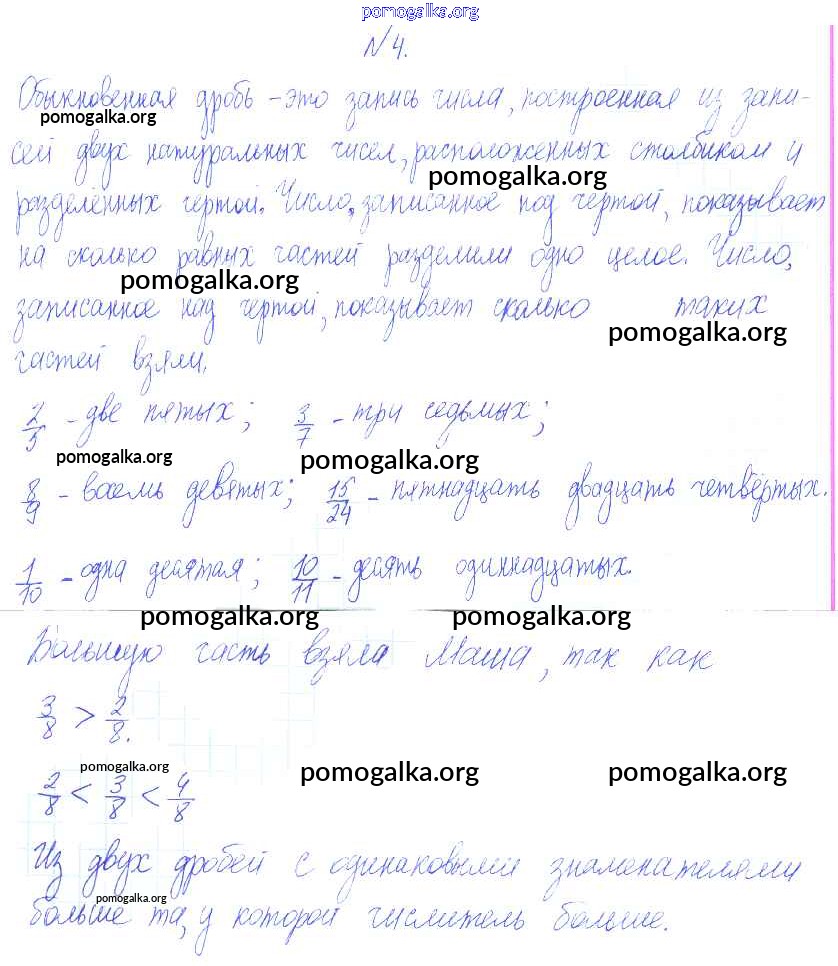 pomogalka.org
N 4.
Обыкновенная дробь - это запись числа, построенная из запи-
pomogalka.org
сей двух натуральных чисел, расположенных столбиком и
pomogalka.org
разделённых чертой. Число, записанное под чертой, показывает
на сколько равных частей разделили одно целое. Число,
pomogalka.org
записанное над чертой, показывает сколько таких
pomogalka.org
частей взяли.
2/5 - две пятых; 3/7 - три седьмых;
pomogalka.org pomogalka.org
8/9 - восемь девятых; 15/24 - пятнадцать двадцать четвёртых.
1/10 - одна десятая; 10/11 - десять одиннадцатых.
pomogalka.org pomogalka.org
Большую часть взяла Маша, так как
3/8 > 2/8.
pomogalka.org pomogalka.org pomogalka.org
2/8 < 3/8 < 4/8
Из двух дробей с одинаковыми знаменателями
pomogalka.org
больше та, у которой числитель больше.